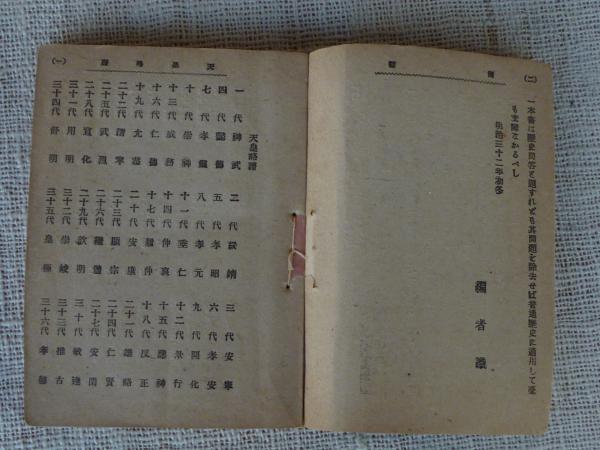 (二)
一本書は歴史問答と題すれども其問題を除去せば普通歴史に適用して毫
も支障なかるべし
明治三十二年初冬
編者識
天皇略譜
(一)
天皇略譜
一代神武 二代綏靖 三代安寧
四代懿德 五代孝昭 六代孝安
七代孝靈 八代孝元 九代開化
十代崇神 十一代垂仁 十二代景行
十三代成務 十四代仲哀 十五代應神
十六代仁德 十七代履仲 十八代反正
十九代允恭 二十代安康 二十一代雄略
二十二代清寧 二十三代顯宗 二十四代仁賢
二十五代武烈 二十六代繼體 二十七代安閑
二十八代宣化 二十九代欽明 三十代敏達
三十一代用明 三十二代崇峻 三十三代推古
三十四代舒明 三十五代皇極 三十六代孝德